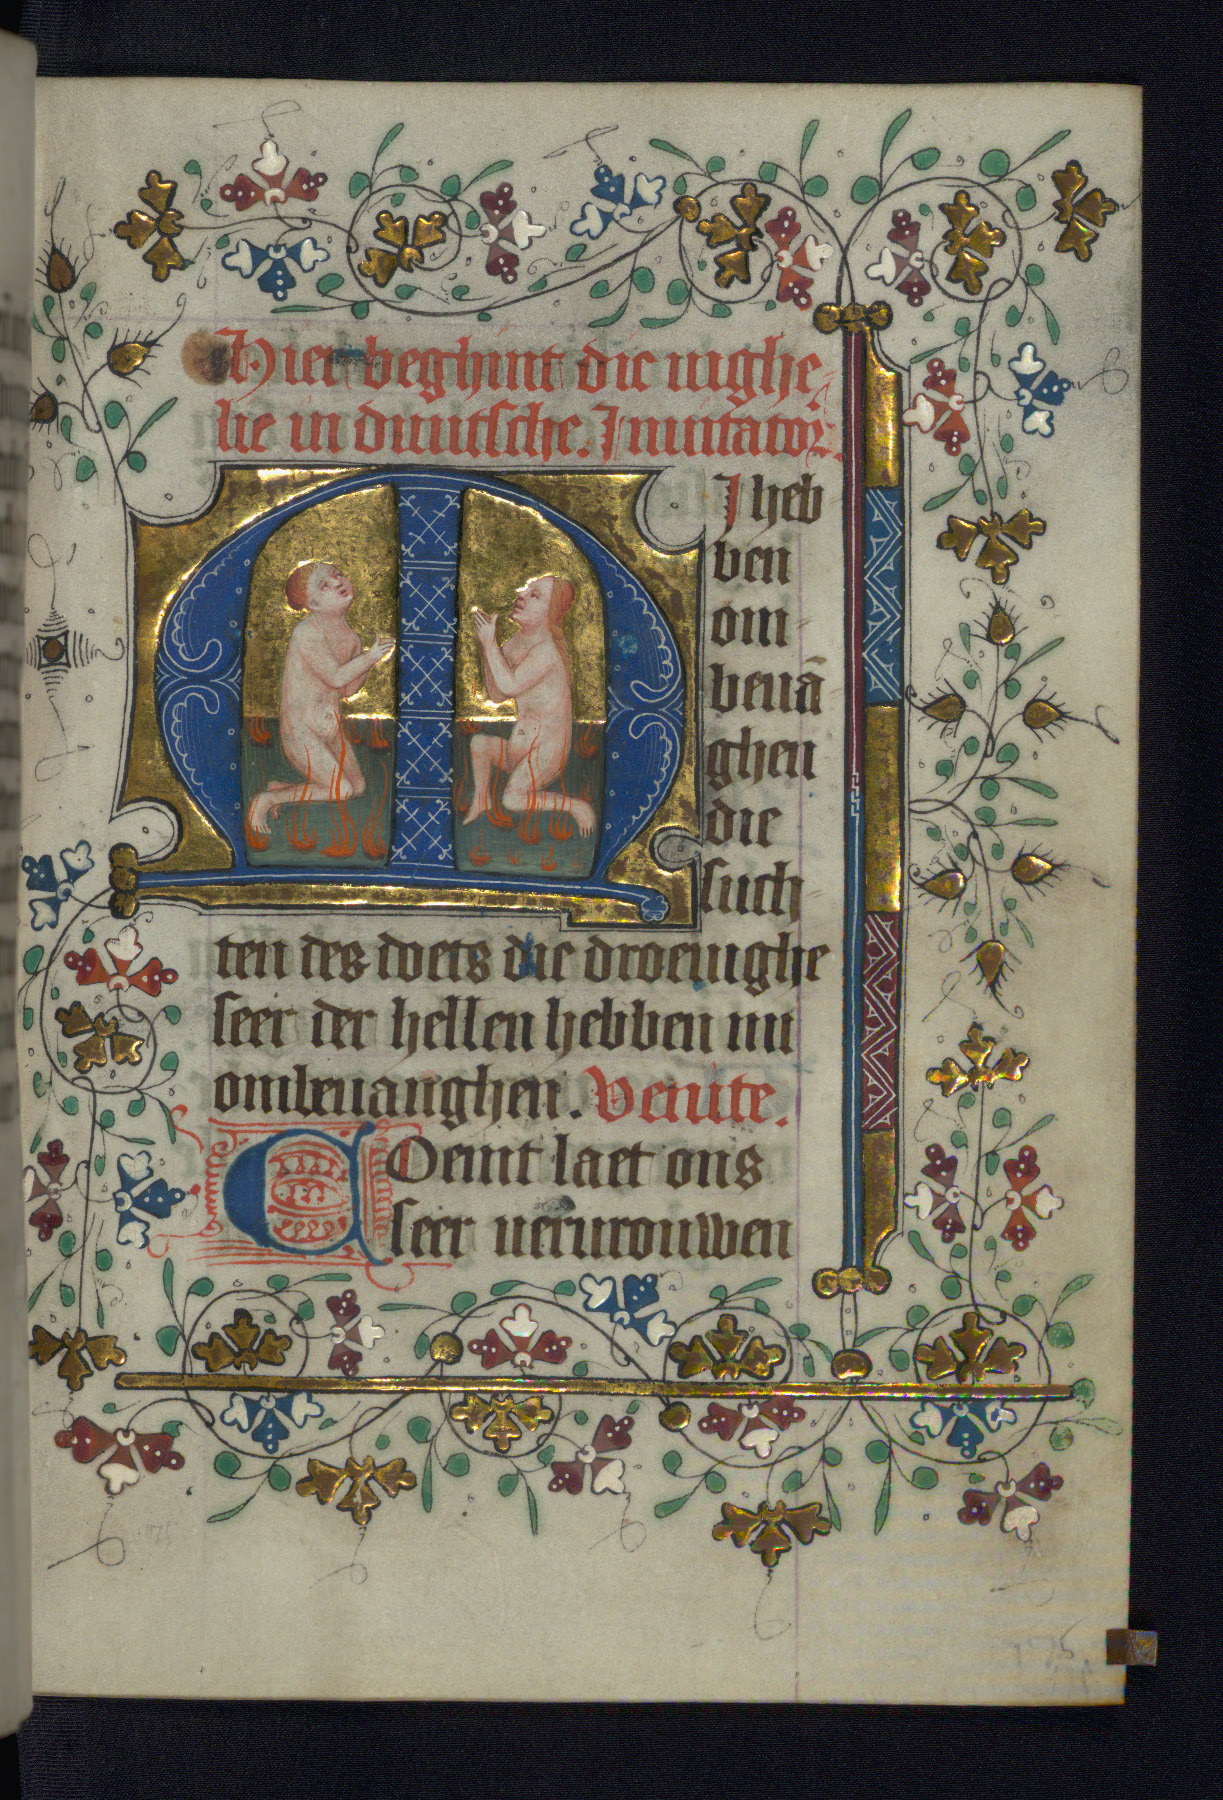 Hier beghint die vighe-
lie in duutsche. Inuitator.
M I heb
ben
om
beuā
ghen
die
such
ten des doets die droeuighe
seer der hellen hebben mi
ombeuanghen. Venite.
Coemt laet ons
seer verurouwen